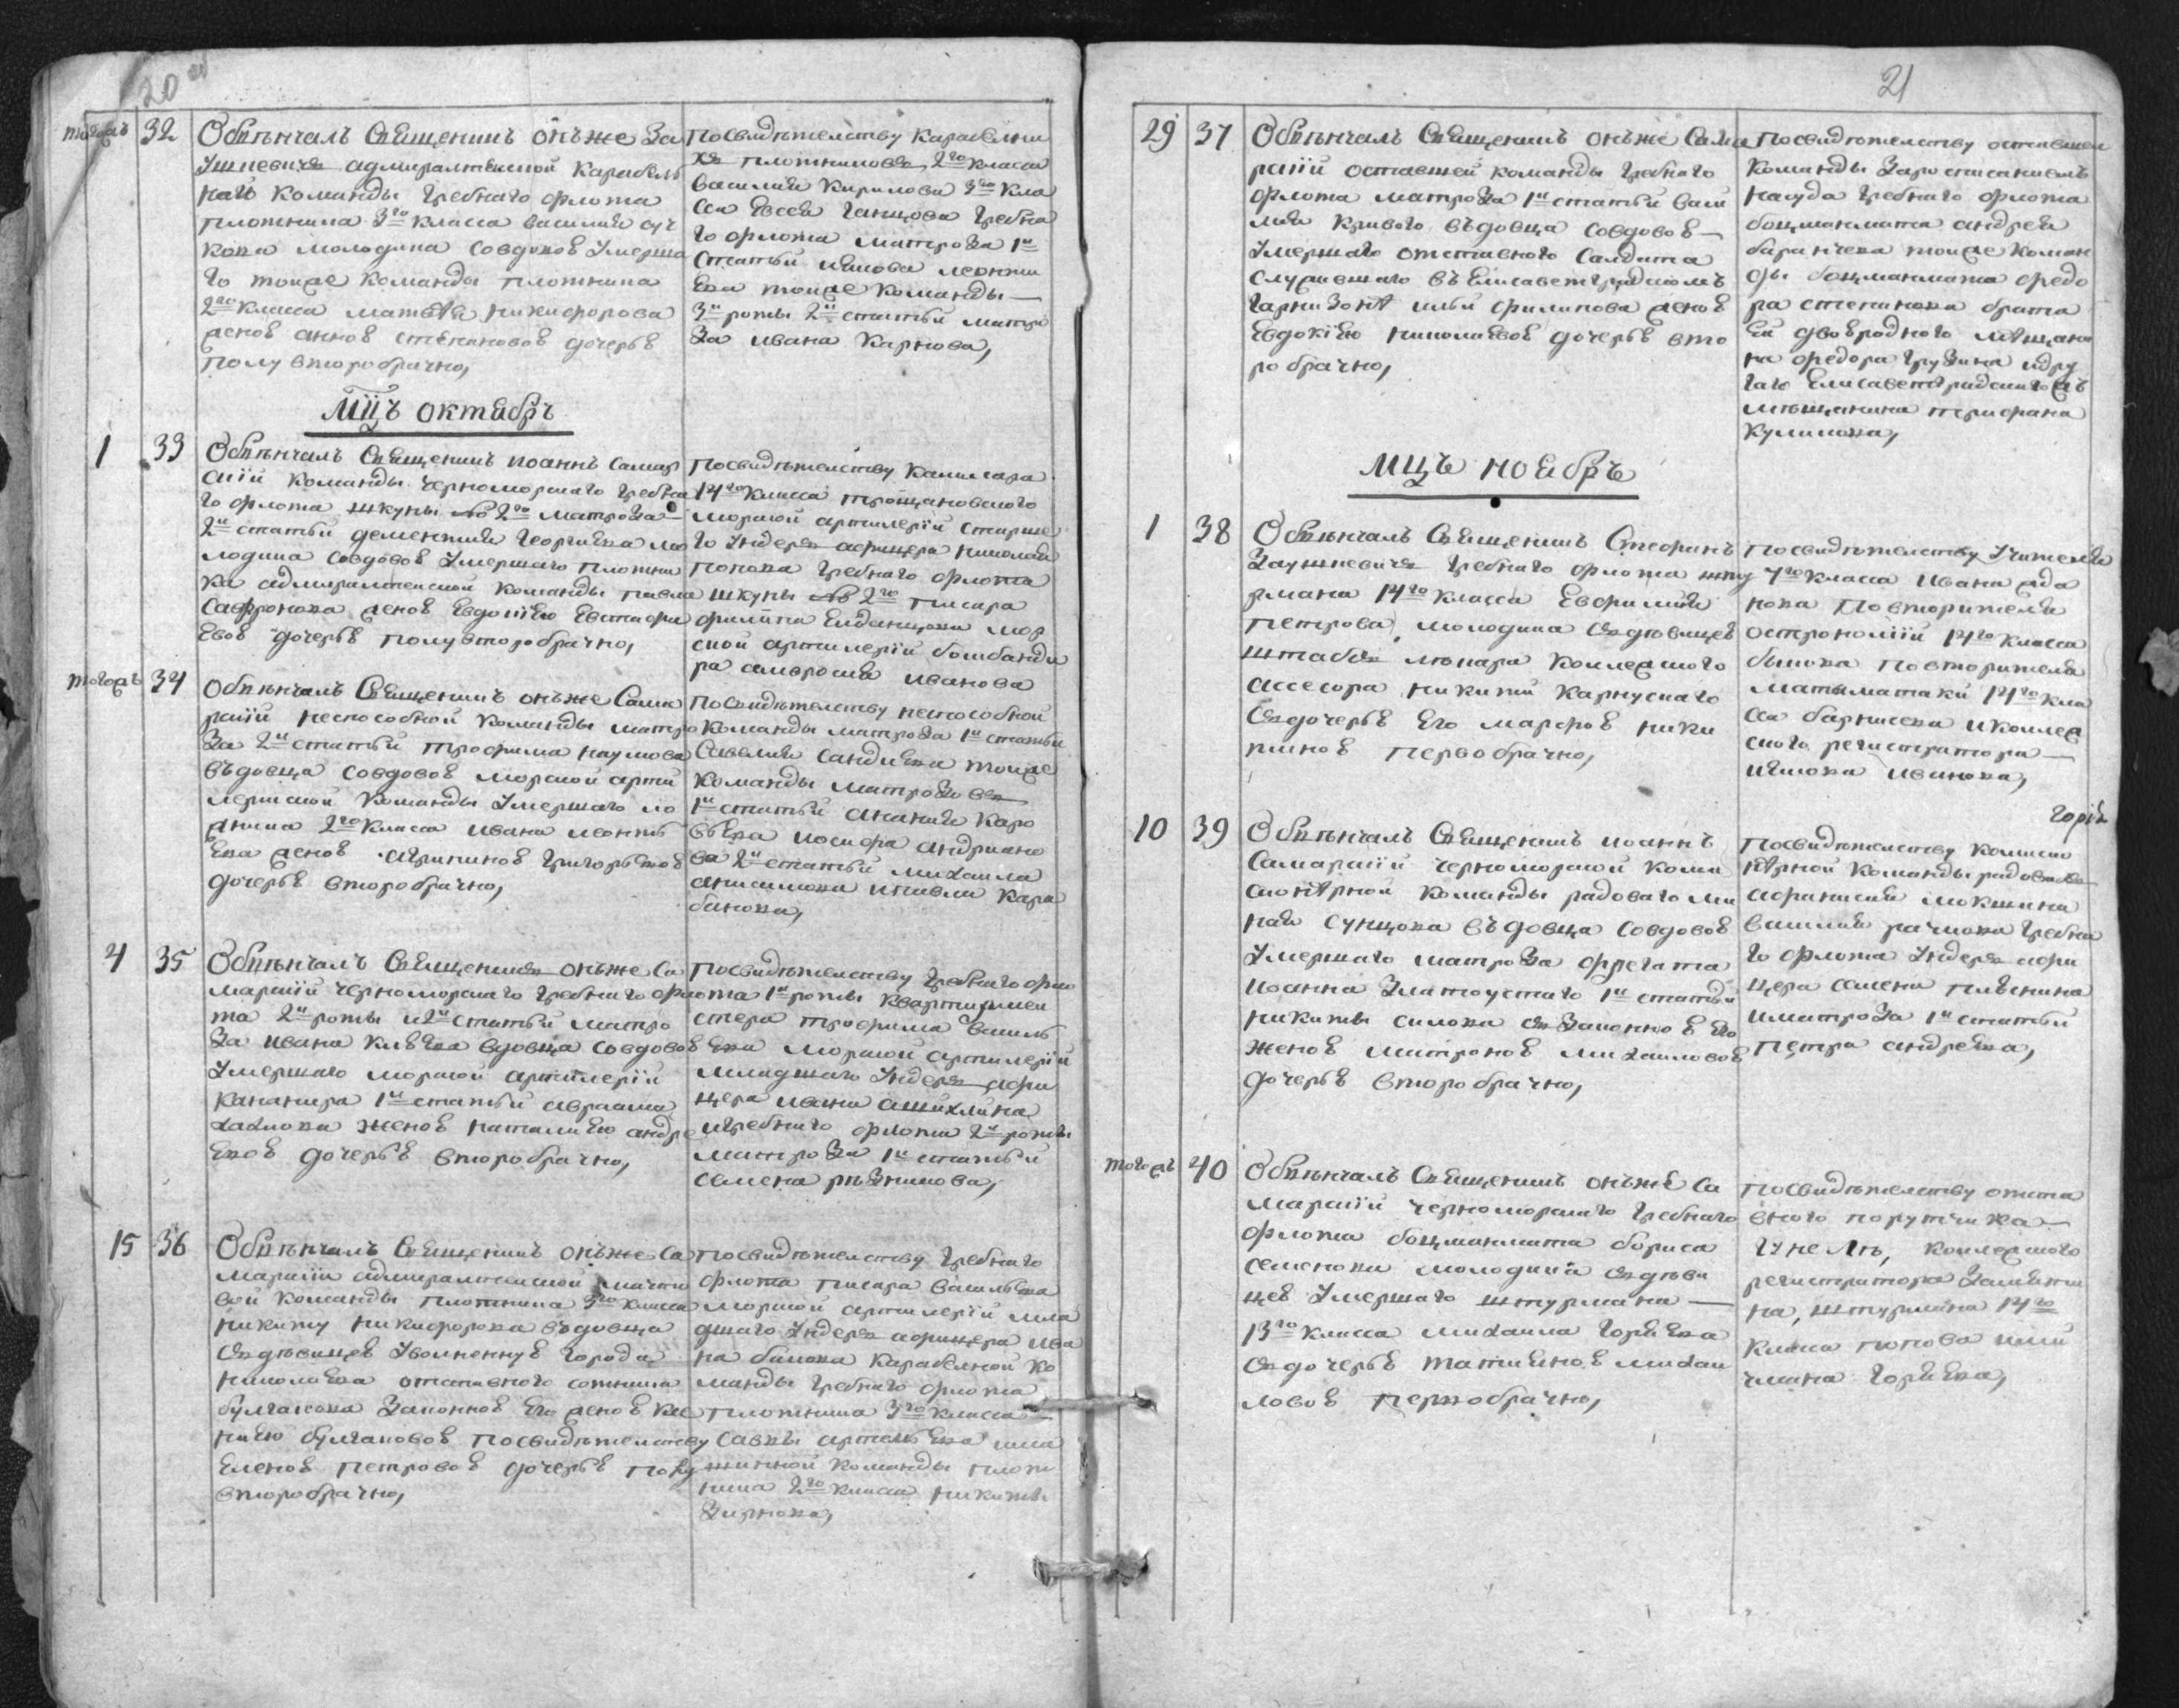 20
тогожъ 32
Обвѣнчалъ Священникъ онъже За
ушкевичъ адмиралтеиской карабель
наго команды гребнаго флота
плотника 3го класса василия
кова молодика совдовою умерша
го тоиже команды плотника
2го класса матвѣя никифорова
женою анною степановою дочерью
полувторобрачно,
Посвидѣтелству карабелни
хъ плотниковъ 2го класса
василия кирилова 3го кла
са евсея ганцова гребна
го флота матроза 1й
статьи якова леонти
ева тоиже команды
3й роты 2й статьи матро
за ивана карнова,
Мцъ октябрь
1 33
Обвѣнчалъ Священникъ иоаннъ самар
скій команды черноморскаго гребна
го флота шкуны № 2го матроза
2й статьи дементия георгиева мо
лодика совдовою умершаго плотни
ка адмиралтеиской команды павла
сафронова женою евдокиею евстафи
евою дочерью полувторобрачно,
Посвидѣтелству камисара
14го класса трощановского
морской артилерїи старше
го ундеръ афицера николая
попова гребнаго флота
шкуны № 2го писара
филипа елданцова мор
ской артилерїи бомбанди
ра амвросия иванова
тогожъ 34
Обвѣнчалъ Священникъ онъже Сама
рскїй неспособной команды матро
за 2й статьи трофима наумова
въдовца совдовою морской арти
лериской команды умершаго
2го класса ивана леонть
ева женою агрипиною григорьевою
дочерью второбрачно,
Посвидѣтелству неспособной
команды матроза 1й статьи
савелия сандиева тоиже
команды матрозовъ
1й статьи анания каро
вьева иосифа андриано
ва 2й статьи михаила
анисимова ипавла кара
банова,
4 35
Обвѣнчалъ Священникъ онъже Са
марскїй черноморскаго гребнаго фло
та 2й роты и2й статьи матро
за ивана вдовца совдовою
умершаго морской артилерїи
кананира 1й статьи авраама
женою наталиею андре
евою дочерью второбрачно,
Посвидѣтелству гребнаго фло
та 1й роты квартирмеи
стера трофима василь
ева морской артилерїи
младшаго ундеръ афи
цера ивана
игребнаго флота 2й роты
матроза 1й статьи
семена рѣзникова,
15 36
Обвѣнчалъ Священникъ онъже Са
марскїи адмиралтеиской мачто
вой команды плотника 3го класса
никиту никифорова въдовца
здѣвицею уволненную города
николаева отставного сотника
булгакова законною его женою ксе
ниею булгаковою посвидѣтелству
еленою петровою дочерью полу
второбрачно,
Посвидѣтелству гребнаго
флота писара васильева
морской артилерїи мла
дшаго ундеръ афицера ива
на быкова карабелной ко
манды гребнаго флота
плотника 3го класса
савы артемьева
команды плот
ника 2го класса никиты
21
29 37
Обвѣнчалъ Священникъ онъже Сама
рскїй оставшей команды гребнаго
флота матроза 1й статьи васи
лия кривого въдовца совдовою
умершаго отставного салдата
служившаго въелисаветградскомъ
гарнизонѣ ильи филипова женою
евдокїею николаевою дочерью вто
робрачно,
Посвидѣтелству оставшей
команды заросписаниемъ
насуда гребнаго флота
боцманмата андрея
баранчеева тоиже коман
ды боцманмата федо
ра степанова брата
ей двоюродного мѣщани
на федора грузина идру
гаго елисаветградскогожъ
мѣщанина
куликова,
Мцъ ноябрь
1 38
Обвѣнчалъ Священникъ Стефанъ
Заушкевичъ гребнаго флота шту
рмана 14го класса евфимия
петрова молодика здѣвицею
штабъ лѣкара коллежского
ассесора никиты карпускаго
здочерью его марфою ники
тиною первобрачно,
Посвидѣтелству учителя
7го класса ивана
нова повторителя
острономїи 14го класса
быкова повторителя
матыматаки 14го кла
са барнисева иколлеж
ского регистратора
якова иванова,
10 39
Обвѣнчалъ Священникъ иоаннъ
Самарскїй черноморской коми
сионѣрной команды радоваго ми
ная сунцова въдовца совдовою
умершаго матроза фрегата
иоанна златоустаго 1й статьи
никиты силова зъзаконною его
женою матроною михаиловою
дочерью второбрачно,
Посвидѣтелству комисио
нѣрной команды радовыхъ
афанасия мокшина
василия рачкова гребна
го флота ундеръ афи
цера семена
иматроза 1й статьи
петра андреева,
тогожъ 40
Обвѣнчалъ Священникъ онъже Са
марскїй черноморскаго гребнаго
флота боцманмата бориса
семенова молодика здѣви
цею умершаго штурмана
13го класса михаила горяева
здочерью татияною михаи
ловою первобрачно,
Посвидѣтелству отста
вного порутчика
коллежского
регистратора
на, штурмана 14го
класа попова
горяева,